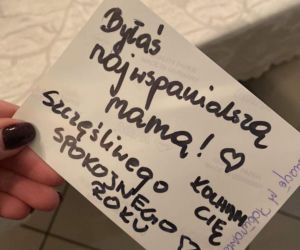 Byłaś
najwspanialszą
mamą! ♡
Szczęśliwego
SPOKOJNEGO
ROKU ♡
KOCHAM
CIĘ ♡